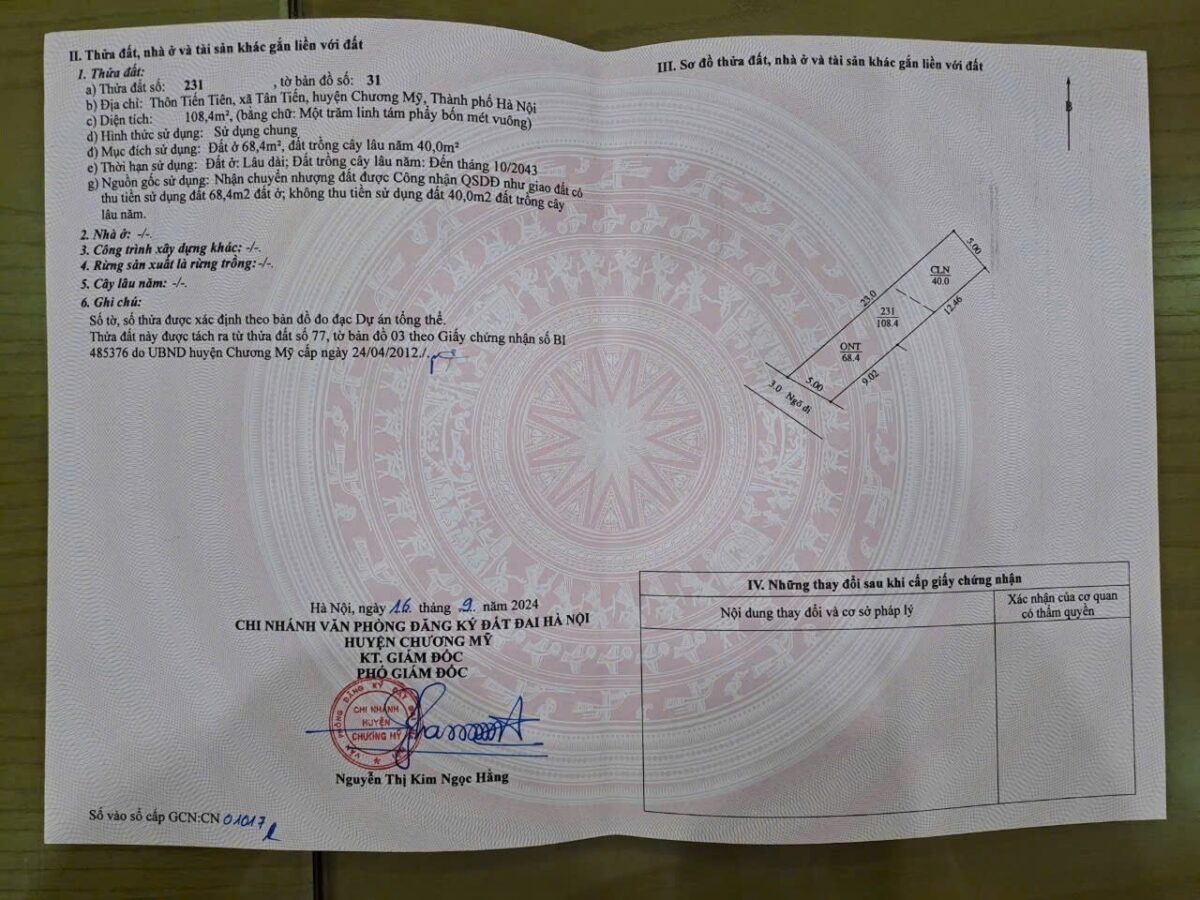 II. Thửa đất, nhà ở và tài sản khác gắn liền với đất
1. Thửa đất:
a) Thửa đất số: 231 , tờ bản đồ số: 31
b) Địa chỉ: Thôn Tiến Tiên, xã Tân Tiến, huyện Chương Mỹ, Thành phố Hà Nội
c) Diện tích: 108,4m², (bằng chữ: Một trăm linh tám phẩy bốn mét vuông)
d) Hình thức sử dụng: Sử dụng chung
đ) Mục đích sử dụng: Đất ở 68,4m², đất trồng cây lâu năm 40,0m²
e) Thời hạn sử dụng: Đất ở: Lâu dài; Đất trồng cây lâu năm: Đến tháng 10/2043
g) Nguồn gốc sử dụng: Nhận chuyển nhượng đất được Công nhận QSDĐ như giao đất có
thu tiền sử dụng đất 68,4m2 đất ở; không thu tiền sử dụng đất 40,0m2 đất trồng cây
lâu năm.
2. Nhà ở: -/-.
3. Công trình xây dựng khác: -/-.
4. Rừng sản xuất là rừng trồng: -/-.
5. Cây lâu năm: -/-.
6. Ghi chú:
Số tờ, số thửa được xác định theo bản đồ đo đạc Dự án tổng thể.
Thửa đất này được tách ra từ thửa đất số 77, tờ bản đồ 03 theo Giấy chứng nhận số BI
485376 do UBND huyện Chương Mỹ cấp ngày 24/04/2012./.
Hà Nội, ngày 16 tháng 9 năm 2024
CHI NHÁNH VĂN PHÒNG ĐĂNG KÝ ĐẤT ĐAI HÀ NỘI
HUYỆN CHƯƠNG MỸ
KT. GIÁM ĐỐC
PHÓ GIÁM ĐỐC
VĂN PHÒNG ĐĂNG KÝ ĐẤT
CHI NHÁNH
HUYỆN
CHƯƠNG MỸ
Nguyễn Thị Kim Ngọc Hằng
Số vào sổ cấp GCN:CN 01017
III. Sơ đồ thửa đất, nhà ở và tài sản khác gắn liền với đất
B
5.00
CLN
40.0
23.0
12.46
231
108.4
ONT
68.4
9.02
5.00
3.0 Ngõ đi
IV. Những thay đổi sau khi cấp giấy chứng nhận
Nội dung thay đổi và cơ sở pháp lý
Xác nhận của cơ quan
có thẩm quyền